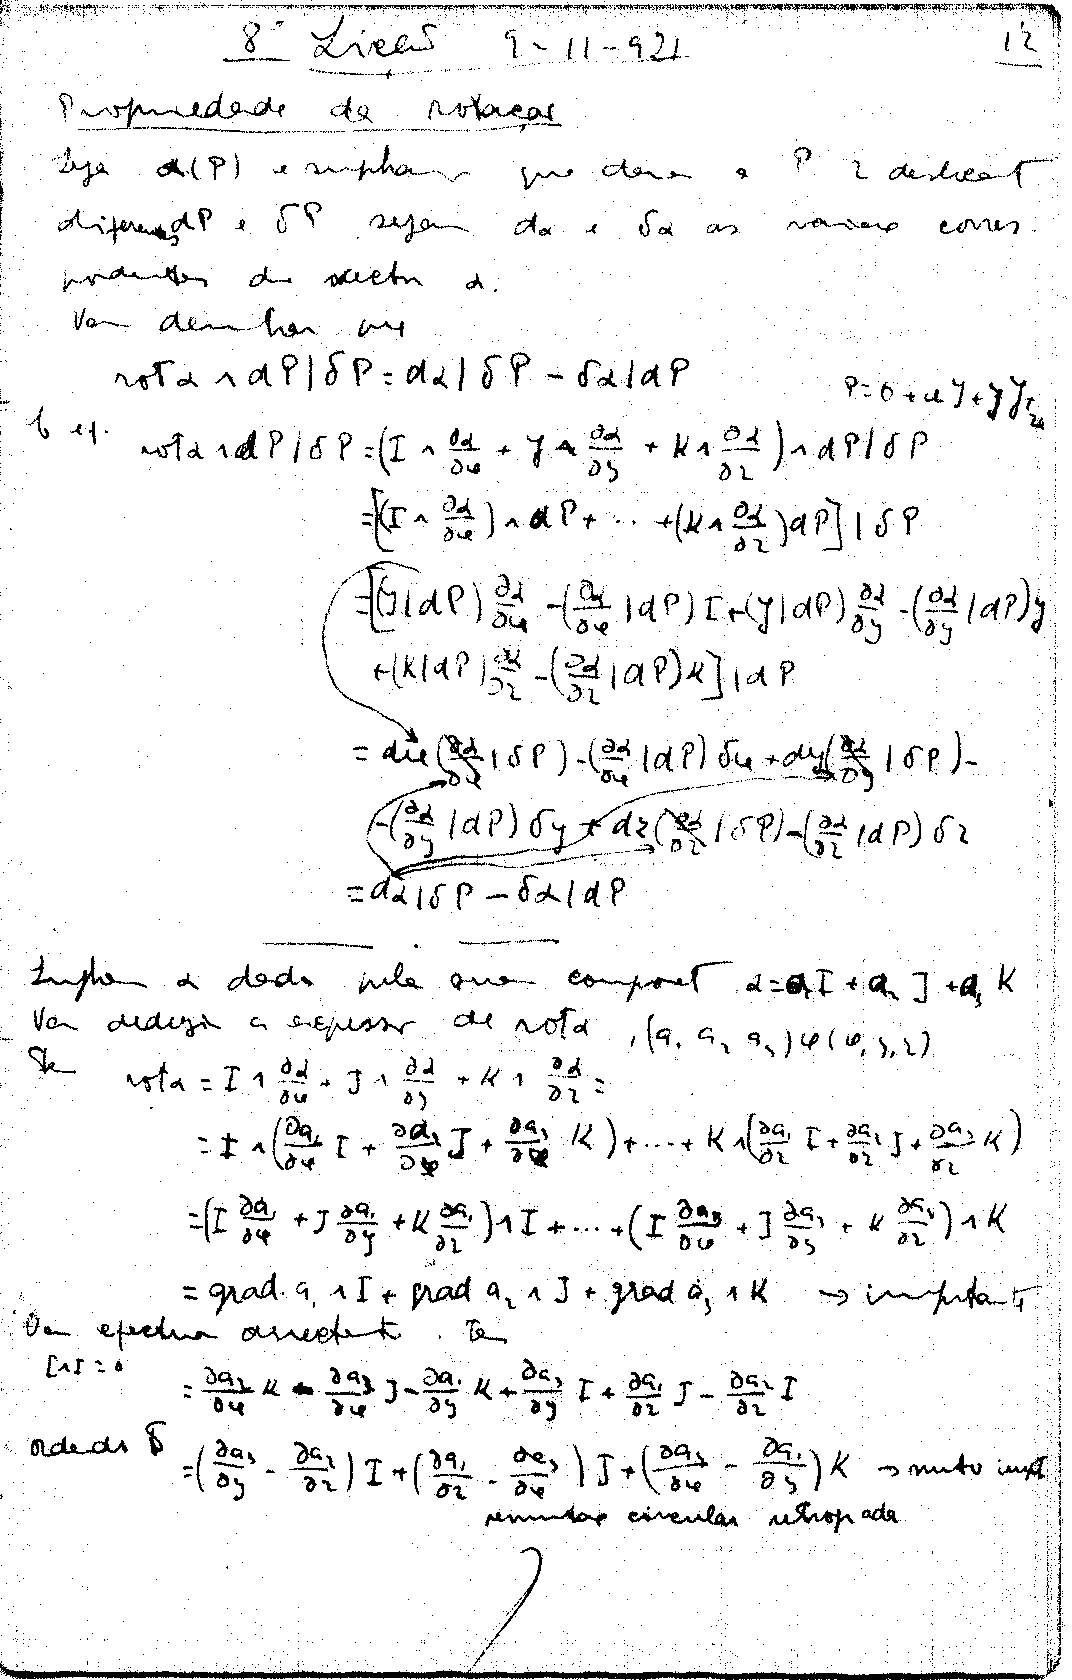 8ª Lição 9-11-921 12
Propriedade da rotaçao
Seja α(P) e supham que dem a P 2 deslocat
diferenes dP e δP sejam dα e δα as variaço corres
pondentes do vector α.
Vam demonstrar que
rotα ∧ dP | δP = dα | δP − δα | dP
P = O + xI + yJ + zk
rotα ∧ dP | δP = (I ∧ ∂α/∂x + J ∧ ∂α/∂y + K ∧ ∂α/∂z) ∧ dP | δP
= [(I ∧ ∂α/∂x) ∧ dP + ... + (K ∧ ∂α/∂z) dP] | δP
= [(I | dP) ∂α/∂x − (∂α/∂x | dP) I + (J | dP) ∂α/∂y − (∂α/∂y | dP) J
+ (K | dP) ∂α/∂z − (∂α/∂z | dP) K] | dP
= dx (∂α/∂x | δP) − (∂α/∂x | dP) δx + dy (∂α/∂y | δP) −
− (∂α/∂y | dP) δy + dz (∂α/∂z | δP) − (∂α/∂z | dP) δz
= dα | δP − δα | dP
Supham α dado pela suas componet α = a₁I + a₂J + a₃K
Vam deduzir a expressao de rotα, (a₁ a₂ a₃) φ (x, y, z)
Tem rotα = I ∧ ∂α/∂x + J ∧ ∂α/∂y + K ∧ ∂α/∂z =
= I ∧ (∂a₁/∂x I + ∂a₂/∂x J + ∂a₃/∂x K) + ... + K ∧ (∂a₁/∂z I + ∂a₂/∂z J + ∂a₃/∂z K)
= (I ∂a₁/∂x + J ∂a₁/∂y + K ∂a₁/∂z) ∧ I + ... + (I ∂a₃/∂x + J ∂a₃/∂y + K ∂a₃/∂z) ∧ K
= grad a₁ ∧ I + grad a₂ ∧ J + grad a₃ ∧ K → importante
Vam efectuar Tem
I∧I = 0
= ∂a₂/∂x K − ∂a₃/∂x J − ∂a₁/∂y K + ∂a₃/∂y I + ∂a₁/∂z J − ∂a₂/∂z I
ordendo
= (∂a₃/∂y − ∂a₂/∂z) I + (∂a₁/∂z − ∂a₃/∂x) J + (∂a₂/∂x − ∂a₁/∂y) K → muto impt
permutax circular retrograda